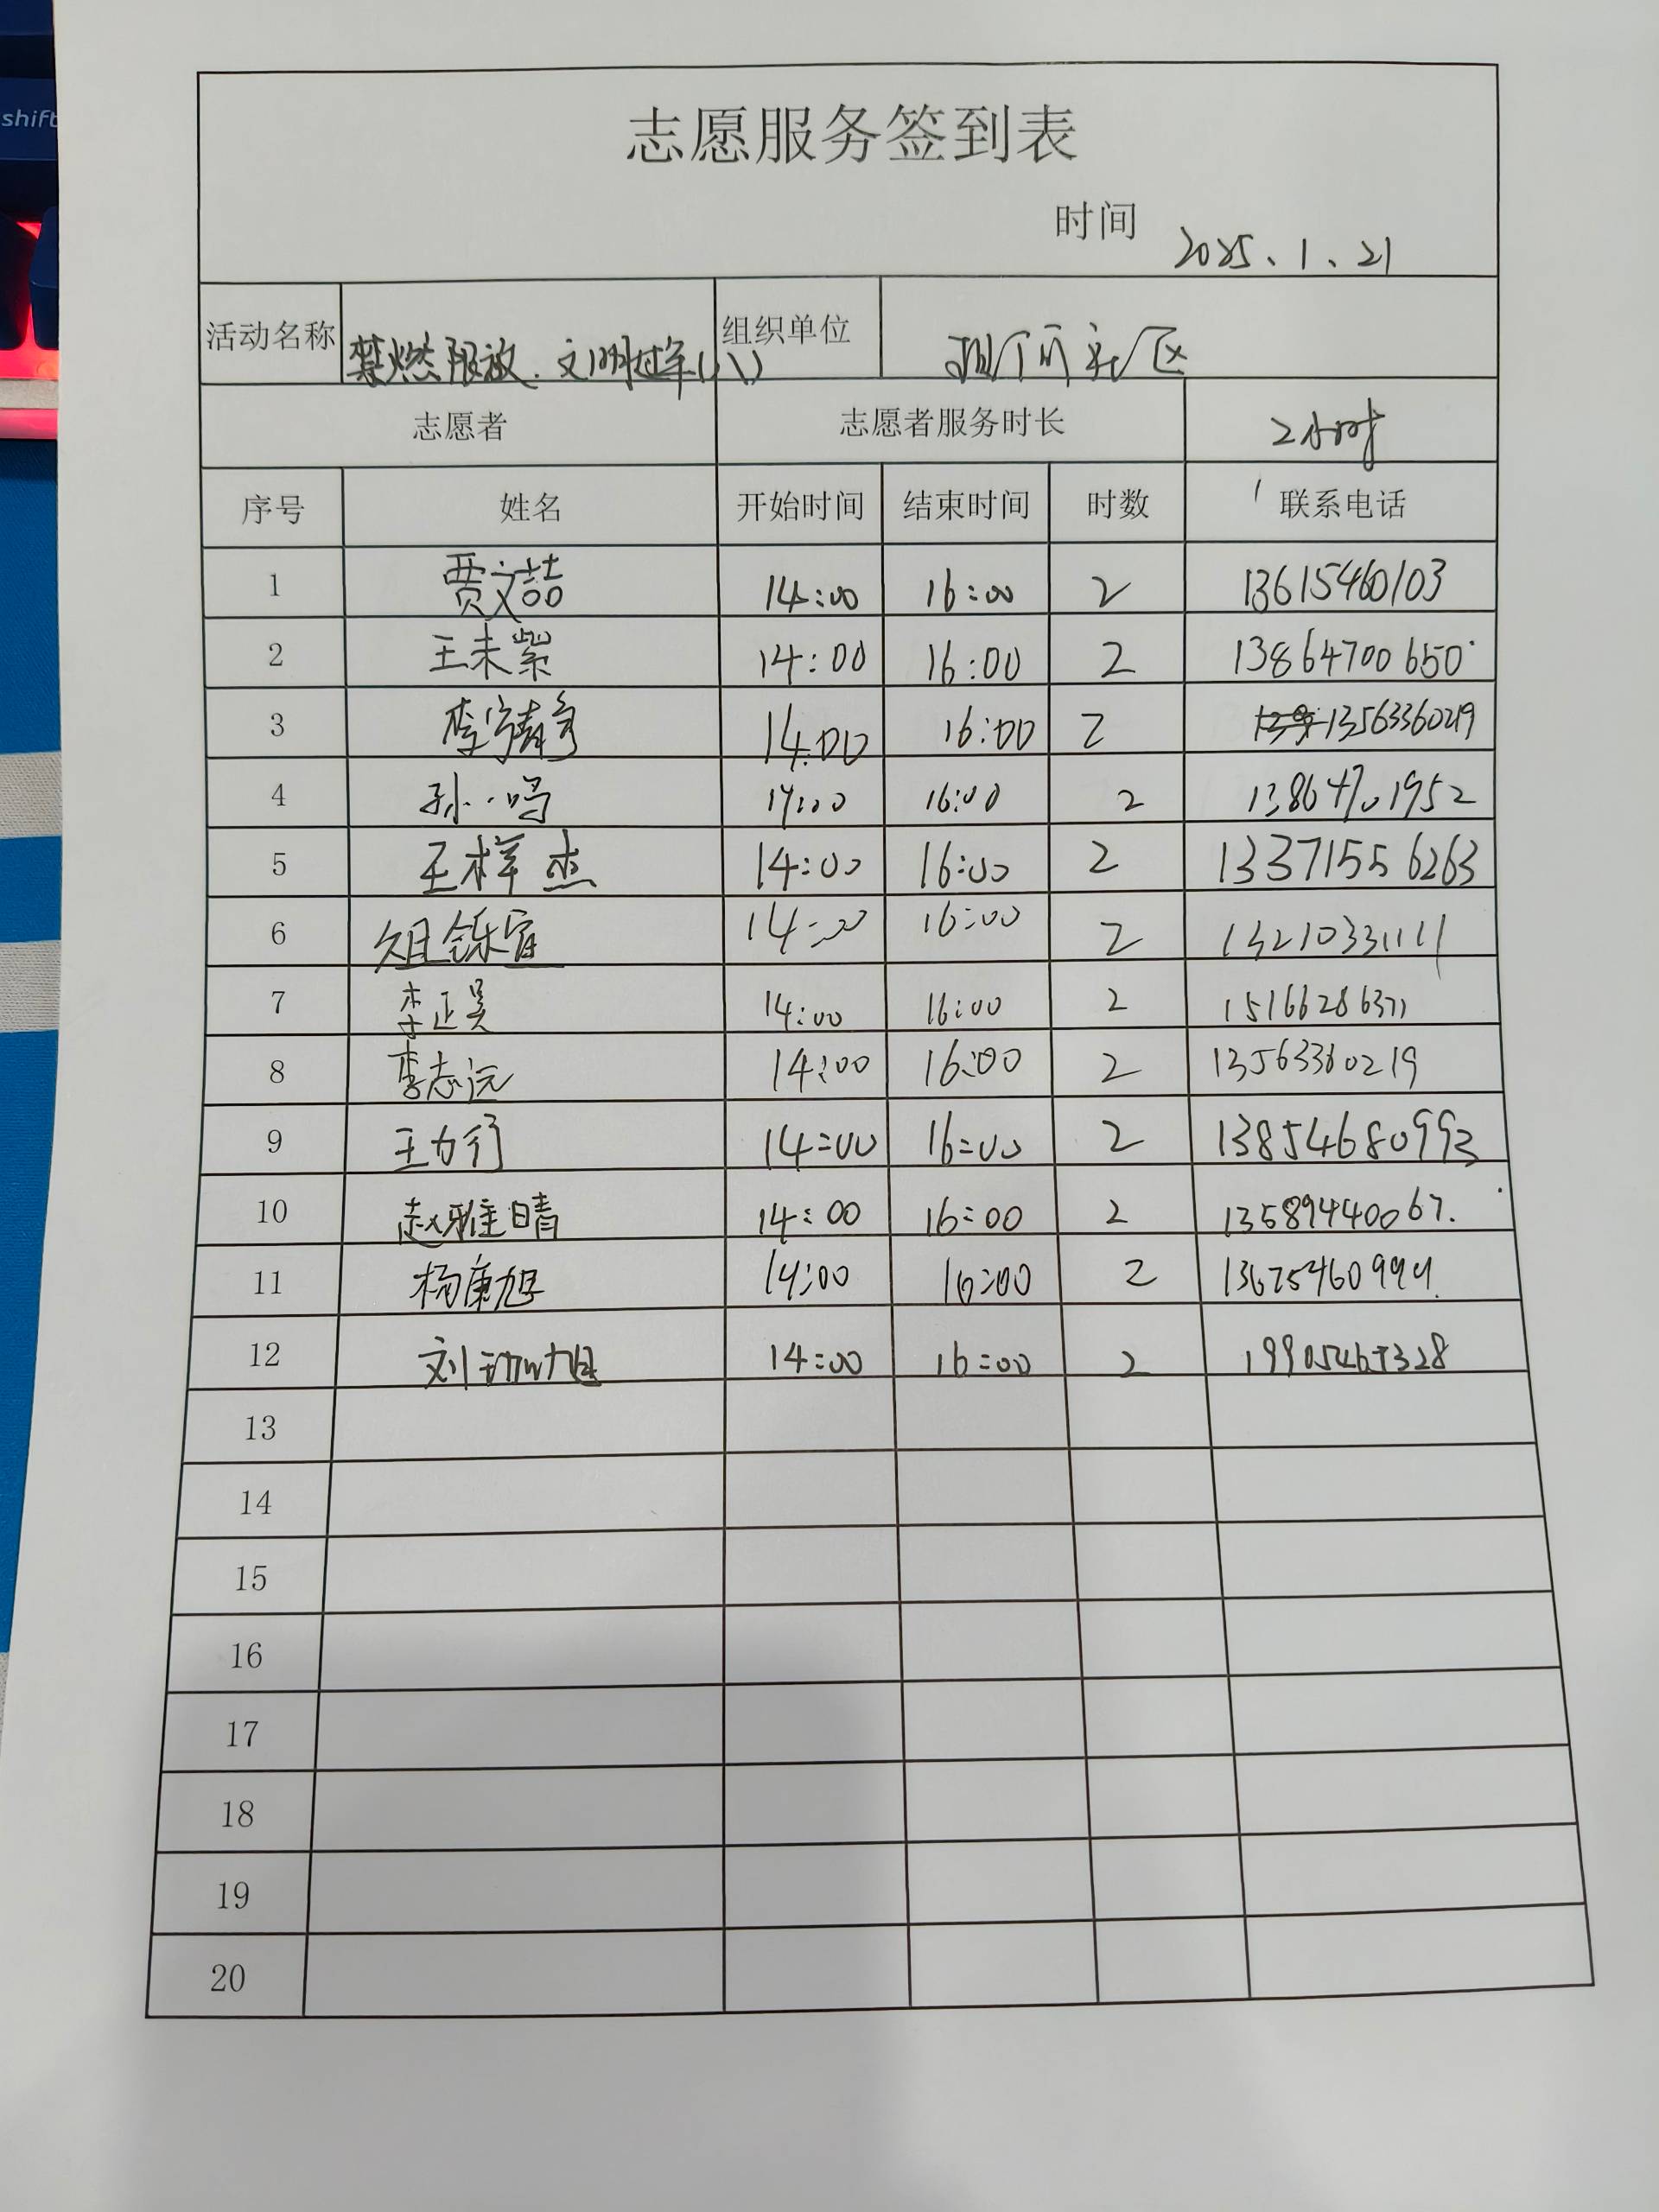 shift
志愿服务签到表
时间 2025、1、21
活动名称 禁燃限放、文明过年(八) 组织单位 社区
志愿者 志愿者服务时长 2小时
序号 姓名 开始时间 结束时间 时数 联系电话
1 贾文喆 14:00 16:00 2 13615460103
2 王未紫 14:00 16:00 2 13864700650
3 李宁静 14:00 16:00 2 13563360219
4 孙一鸣 14:00 16:00 2 13864701952
5 王梓杰 14:00 16:00 2 13371556263
6 14:00 16:00 2 13210331111
7 李正昊 14:00 16:00 2 15166286371
8 李志远 14:00 16:00 2 13563360219
9 王力行 14:00 16:00 2 13854680993
10 赵雅晴 14:00 16:00 2 13589440067.
11 杨康旭 14:00 16:00 2
12 14:00 16:00 2
13
14
15
16
17
18
19
20